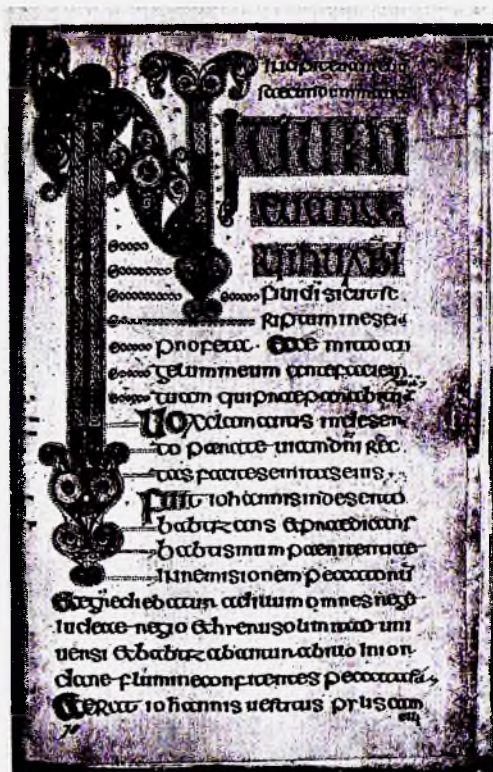 fili di sicut sc
riptum in esei
profeta · Ecce mitto an
gelum meum ante faciem
tuam qui praeparabit
Uox clamantis in deser
to parate uiam dni rec
tas facite semitas eius
Fuit iohannis in deserto
babtizans & praedicans
babtismum paenitentiae
in remisionem peccatorū
Et egrediebatur ad illum omnes regio
iudeae regio & uni
uersi & babtizabantur ab illo in ior
dane flumine confitentes peccata sua
Et erat iohannis uestitus pilis cam
eli